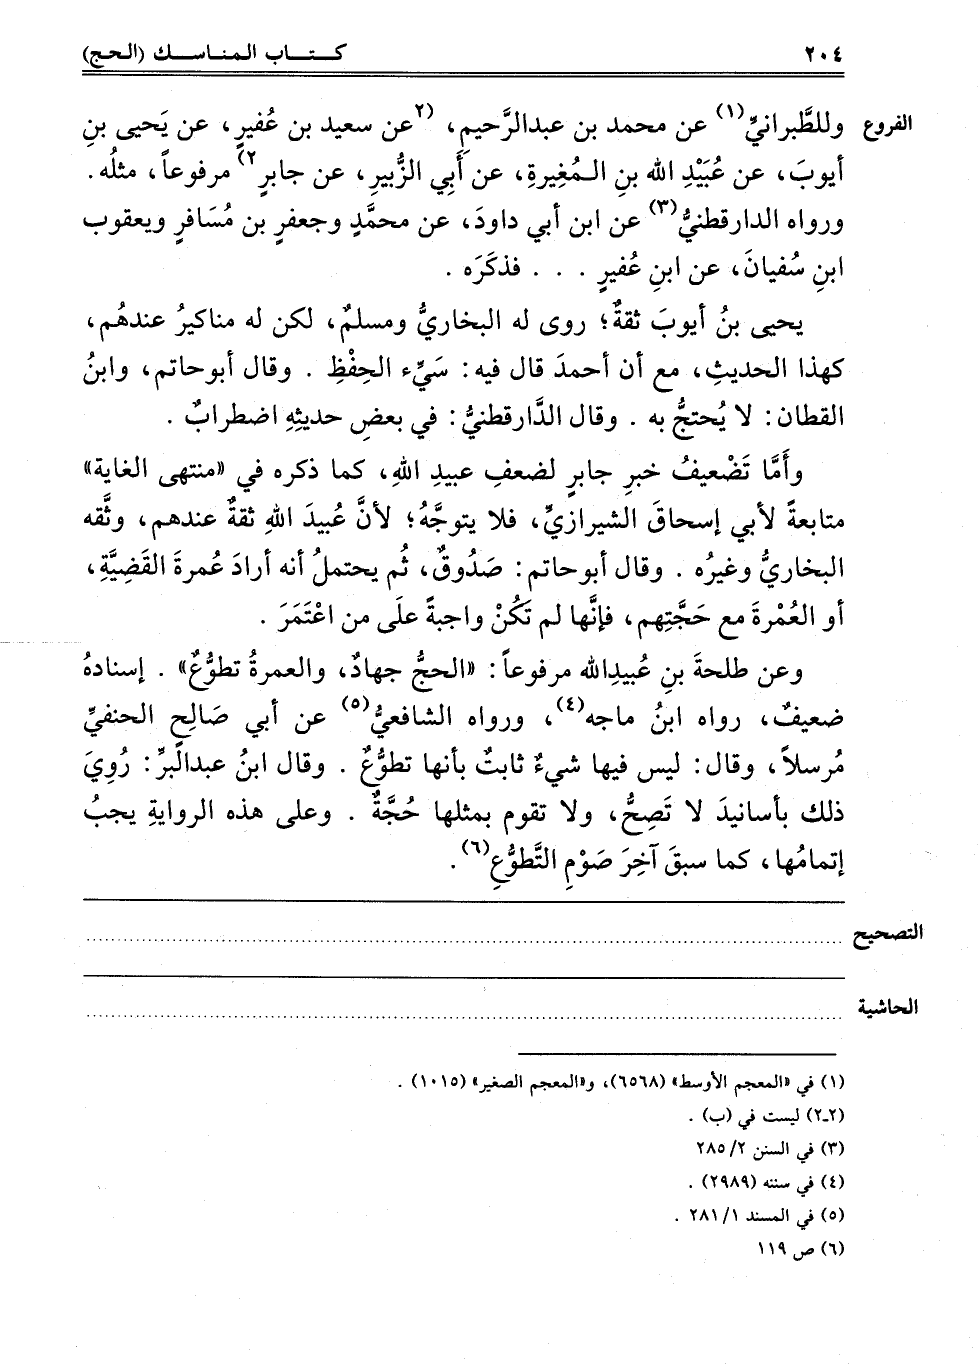 ٢٠٤ كـتـــاب الـمـنـاســـك (الـحـج)
الفروع وللطَّبرانيِّ(١) عن محمد بن عبدالرَّحيمِ، (٢عن سعيد بن عُفيرٍ، عن يَحيى بنِ
أيوبَ، عن عُبَيْدِ الله بنِ الـمُغِيرةِ، عن أَبي الزُّبيرِ، عن جابرٍ٢) مرفوعاً، مثلُه.
ورواه الدارقطنيُّ(٣) عن ابن أبي داودَ، عن محمَّدٍ وجعفرِ بن مُسَافرٍ ويعقوب
ابنِ سُفيانَ، عن ابنِ عُفيرٍ . . . فذكَرَه .
يحيى بنُ أيوبَ ثقةٌ؛ روى له البخاريُّ ومسلمٌ، لكن له مناكيرُ عندهُم،
كهذا الحديثِ، مع أن أحمدَ قال فيه: سَيِّء الحِفْظِ . وقال أبوحاتم، وابنُ
القطان: لا يُحتجُّ به . وقال الدَّارقطنيُّ: في بعضِ حديثِهِ اضطرابٌ .
وأَمَّا تَضْعيفُ خبرِ جابرٍ لضعفِ عبيدِ اللهِ، كما ذكره في «منتهى الغاية»
متابعةً لأبي إسحاقَ الشيرازيِّ، فلا يتوجَّهُ؛ لأنَّ عُبيدَ اللهِ ثقةٌ عندهم، وثَّقه
البخاريُّ وغيرُه . وقال أبوحاتم: صَدُوقٌ، ثُم يحتملُ أنه أرادَ عُمرةَ القَضِيَّةِ،
أو العُمْرةَ مع حَجَّتِهم، فإنَّها لم تَكُنْ واجبةً علَى من اعْتَمَرَ .
وعن طلحةَ بنِ عُبيدِالله مرفوعاً: «الحجُّ جهادٌ، والعمرةُ تطوُّعٌ» . إسنادهُ
ضعيفٌ، رواه ابنُ ماجه(٤)، ورواه الشافعيُّ(٥) عن أبي صَالِحِ الحنفيِّ
مُرسلاً، وقال: ليس فيها شيءٌ ثابتٌ بأنها تطوُّعٌ . وقال ابنُ عبدالبرِّ: رُوِيَ
ذلك بأسانيدَ لا تَصِحُّ، ولا تقوم بمثلها حُجَّةٌ . وعلى هذه الروايةِ يجبُ
إتمامُها، كما سبقَ آخِرَ صَوْمِ التَّطوُّعِ(٦).
التصحيح
الحاشية
(١) في «المعجم الأوسط» (٦٥٦٨)، و«المعجم الصغير» (١٠١٥) .
(٢-٢) ليست في (ب) .
(٣) في السنن ٢٨٥/٢
(٤) في سننه (٢٩٨٩) .
(٥) في المسند ٢٨١/١ .
(٦) ص ١١٩